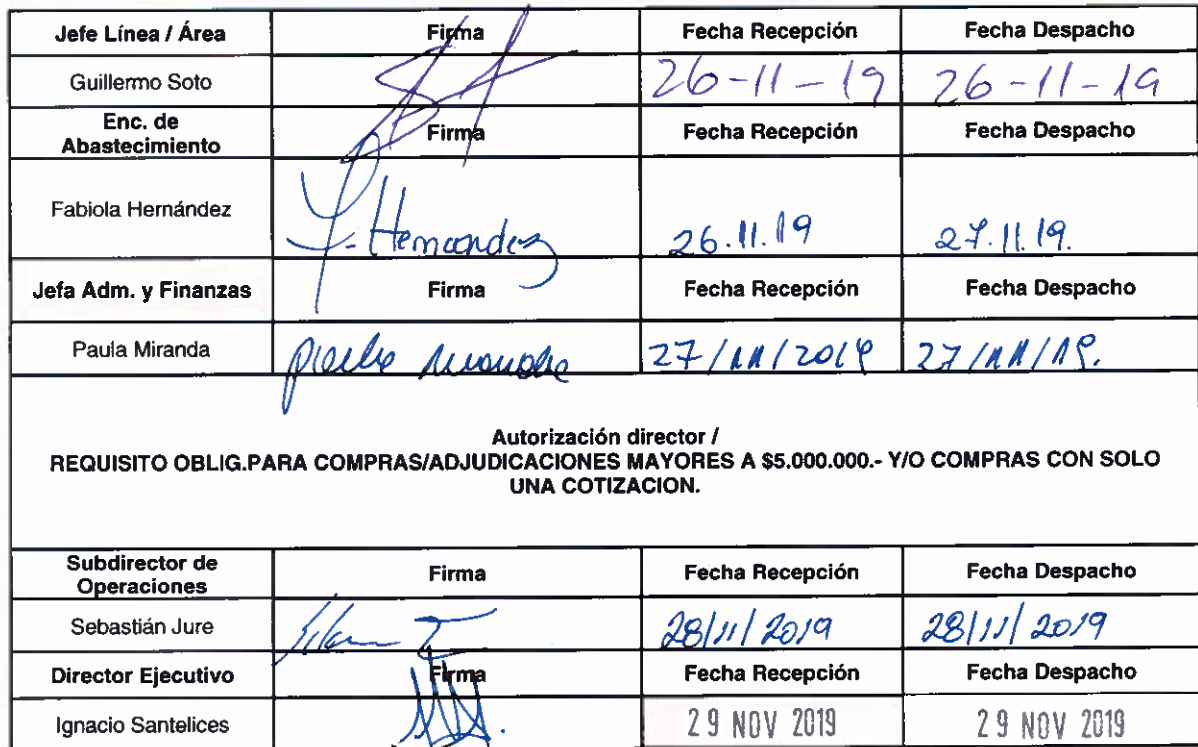 Jefe Línea / Área Firma Fecha Recepción Fecha Despacho
Guillermo Soto 26-11-19 26-11-19
Enc. de
Abastecimiento Firma Fecha Recepción Fecha Despacho
Fabiola Hernández F. Hernandez 26.11.19 27.11.19.
Jefa Adm. y Finanzas Firma Fecha Recepción Fecha Despacho
Paula Miranda 27/11/2019 27/11/19.
Autorización director /
REQUISITO OBLIG.PARA COMPRAS/ADJUDICACIONES MAYORES A $5.000.000.- Y/O COMPRAS CON SOLO
UNA COTIZACION.
Subdirector de
Operaciones Firma Fecha Recepción Fecha Despacho
Sebastián Jure 28/11/2019 28/11/2019
Director Ejecutivo Firma Fecha Recepción Fecha Despacho
Ignacio Santelices 29 NOV 2019 29 NOV 2019